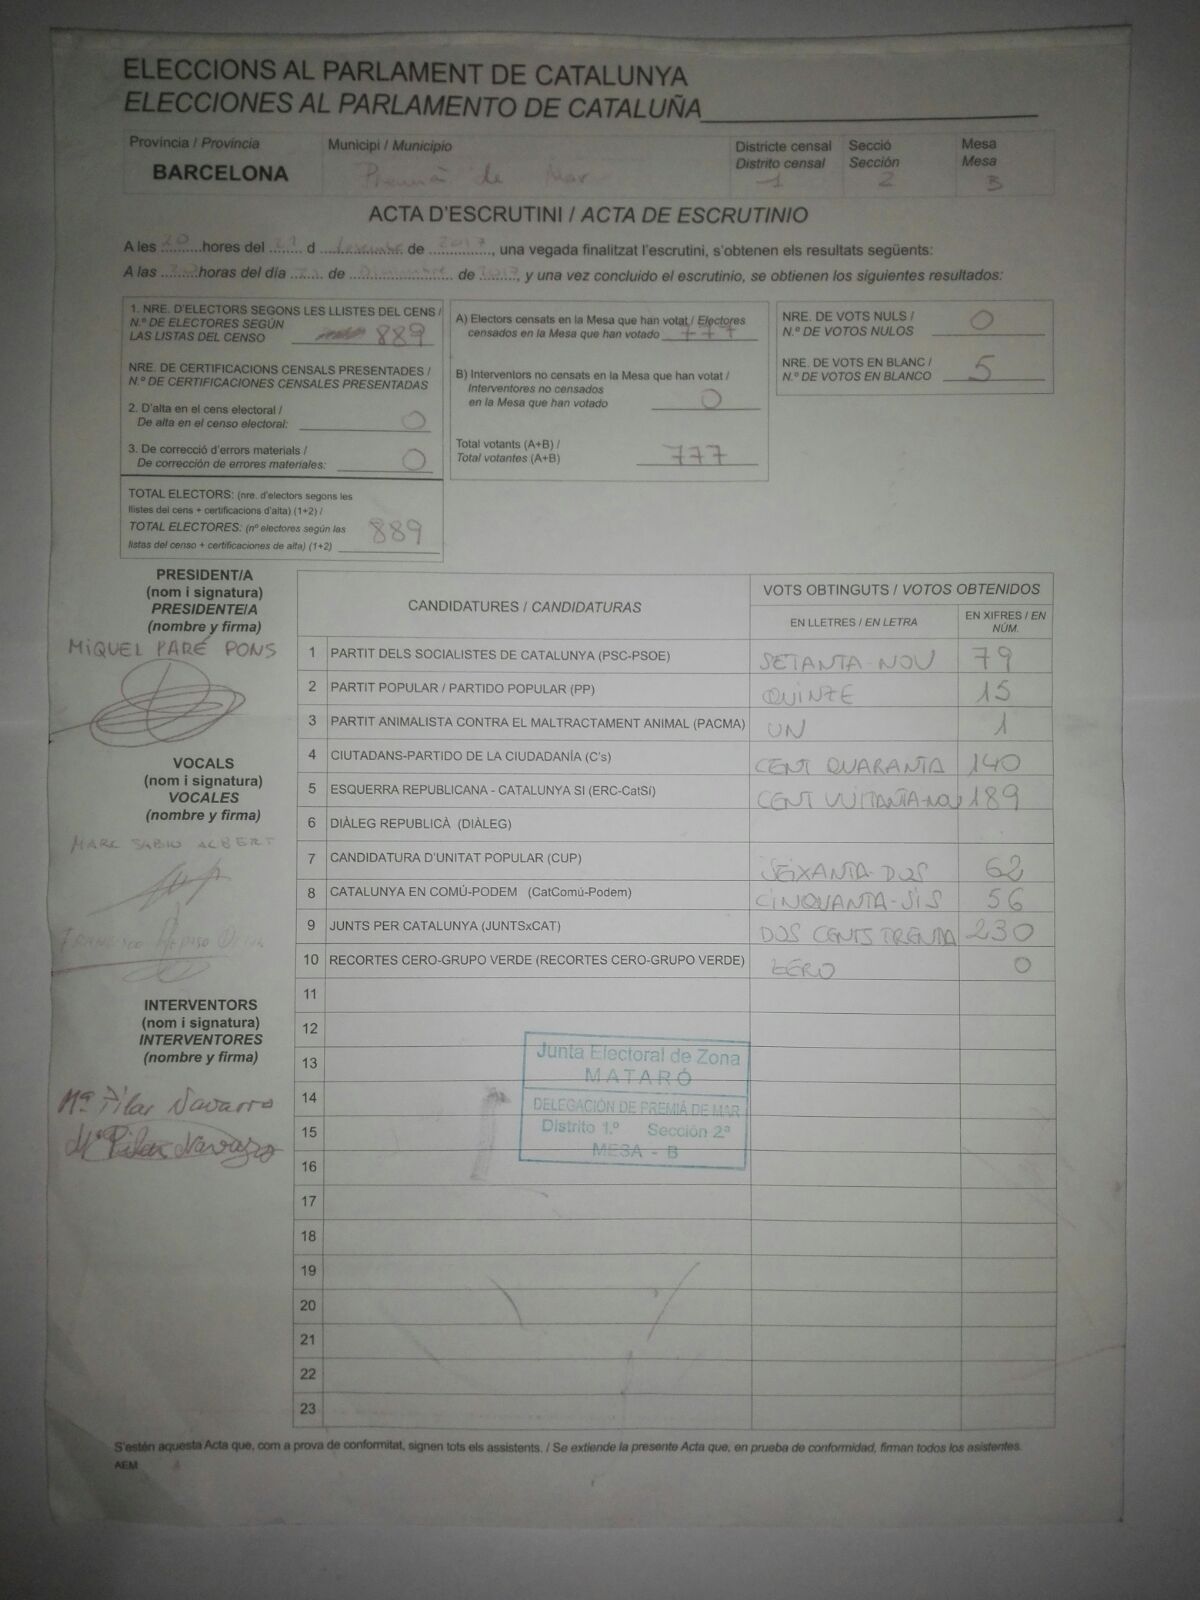 ELECCIONS AL PARLAMENT DE CATALUNYA
ELECCIONES AL PARLAMENTO DE CATALUÑA
Província / Provincia
BARCELONA
Municipi / Municipio
Premià de Mar
Districte censal
Distrito censal
1
Secció
Sección
2
Mesa
Mesa
B
ACTA D'ESCRUTINI / ACTA DE ESCRUTINIO
A les 20 hores del 21 d desembre de 2017, una vegada finalitzat l'escrutini, s'obtenen els resultats següents:
A las 20 horas del día 21 de Diciembre de 2017, y una vez concluido el escrutinio, se obtienen los siguientes resultados:
1. NRE. D'ELECTORS SEGONS LES LLISTES DEL CENS /
N.º DE ELECTORES SEGÚN
LAS LISTAS DEL CENSO 889
NRE. DE CERTIFICACIONS CENSALS PRESENTADES /
N.º DE CERTIFICACIONES CENSALES PRESENTADAS
2. D'alta en el cens electoral /
De alta en el censo electoral: 0
3. De correcció d'errors materials /
De corrección de errores materiales: 0
TOTAL ELECTORS: (nre. d'electors segons les
llistes del cens + certificacions d'alta) (1+2) /
TOTAL ELECTORES: (nº electores según las
listas del censo + certificaciones de alta) (1+2) 889
A) Electors censats en la Mesa que han votat / Electores
censados en la Mesa que han votado 777
B) Interventors no censats en la Mesa que han votat /
Interventores no censados
en la Mesa que han votado 0
Total votants (A+B) /
Total votantes (A+B) 777
NRE. DE VOTS NULS /
N.º DE VOTOS NULOS 0
NRE. DE VOTS EN BLANC /
N.º DE VOTOS EN BLANCO 5
PRESIDENT/A
(nom i signatura)
PRESIDENTE/A
(nombre y firma)
MIQUEL PARÉ PONS
VOCALS
(nom i signatura)
VOCALES
(nombre y firma)
MARC SABIO ALBERT
FRANCISCO
INTERVENTORS
(nom i signatura)
INTERVENTORES
(nombre y firma)
Mª Pilar Navarro
Mª Pilar Navarro
CANDIDATURES / CANDIDATURAS
VOTS OBTINGUTS / VOTOS OBTENIDOS
EN LLETRES / EN LETRA
EN XIFRES / EN
NÚM.
1 PARTIT DELS SOCIALISTES DE CATALUNYA (PSC-PSOE) SETANTA-NOU 79
2 PARTIT POPULAR / PARTIDO POPULAR (PP) QUINZE 15
3 PARTIT ANIMALISTA CONTRA EL MALTRACTAMENT ANIMAL (PACMA) UN 1
4 CIUTADANS-PARTIDO DE LA CIUDADANÍA (C's) CENT QUARANTA 140
5 ESQUERRA REPUBLICANA - CATALUNYA SI (ERC-CatSí) CENT VUITANTA-NOU 189
6 DIÀLEG REPUBLICÀ (DIÀLEG)
7 CANDIDATURA D'UNITAT POPULAR (CUP) SEIXANTA-DOS 62
8 CATALUNYA EN COMÚ-PODEM (CatComú-Podem) CINQUANTA-SIS 56
9 JUNTS PER CATALUNYA (JUNTSxCAT) DOS CENTS TRENTA 230
10 RECORTES CERO-GRUPO VERDE (RECORTES CERO-GRUPO VERDE) ZERO 0
11
12
13
14
15
16
17
18
19
20
21
22
23
Junta Electoral de Zona
MATARÓ
DELEGACIÓN DE PREMIÁ DE MAR
Distrito 1.º Sección 2ª
MESA - B
S'estén aquesta Acta que, com a prova de conformitat, signen tots els assistents. / Se extiende la presente Acta que, en prueba de conformidad, firman todos los asistentes.
AEM